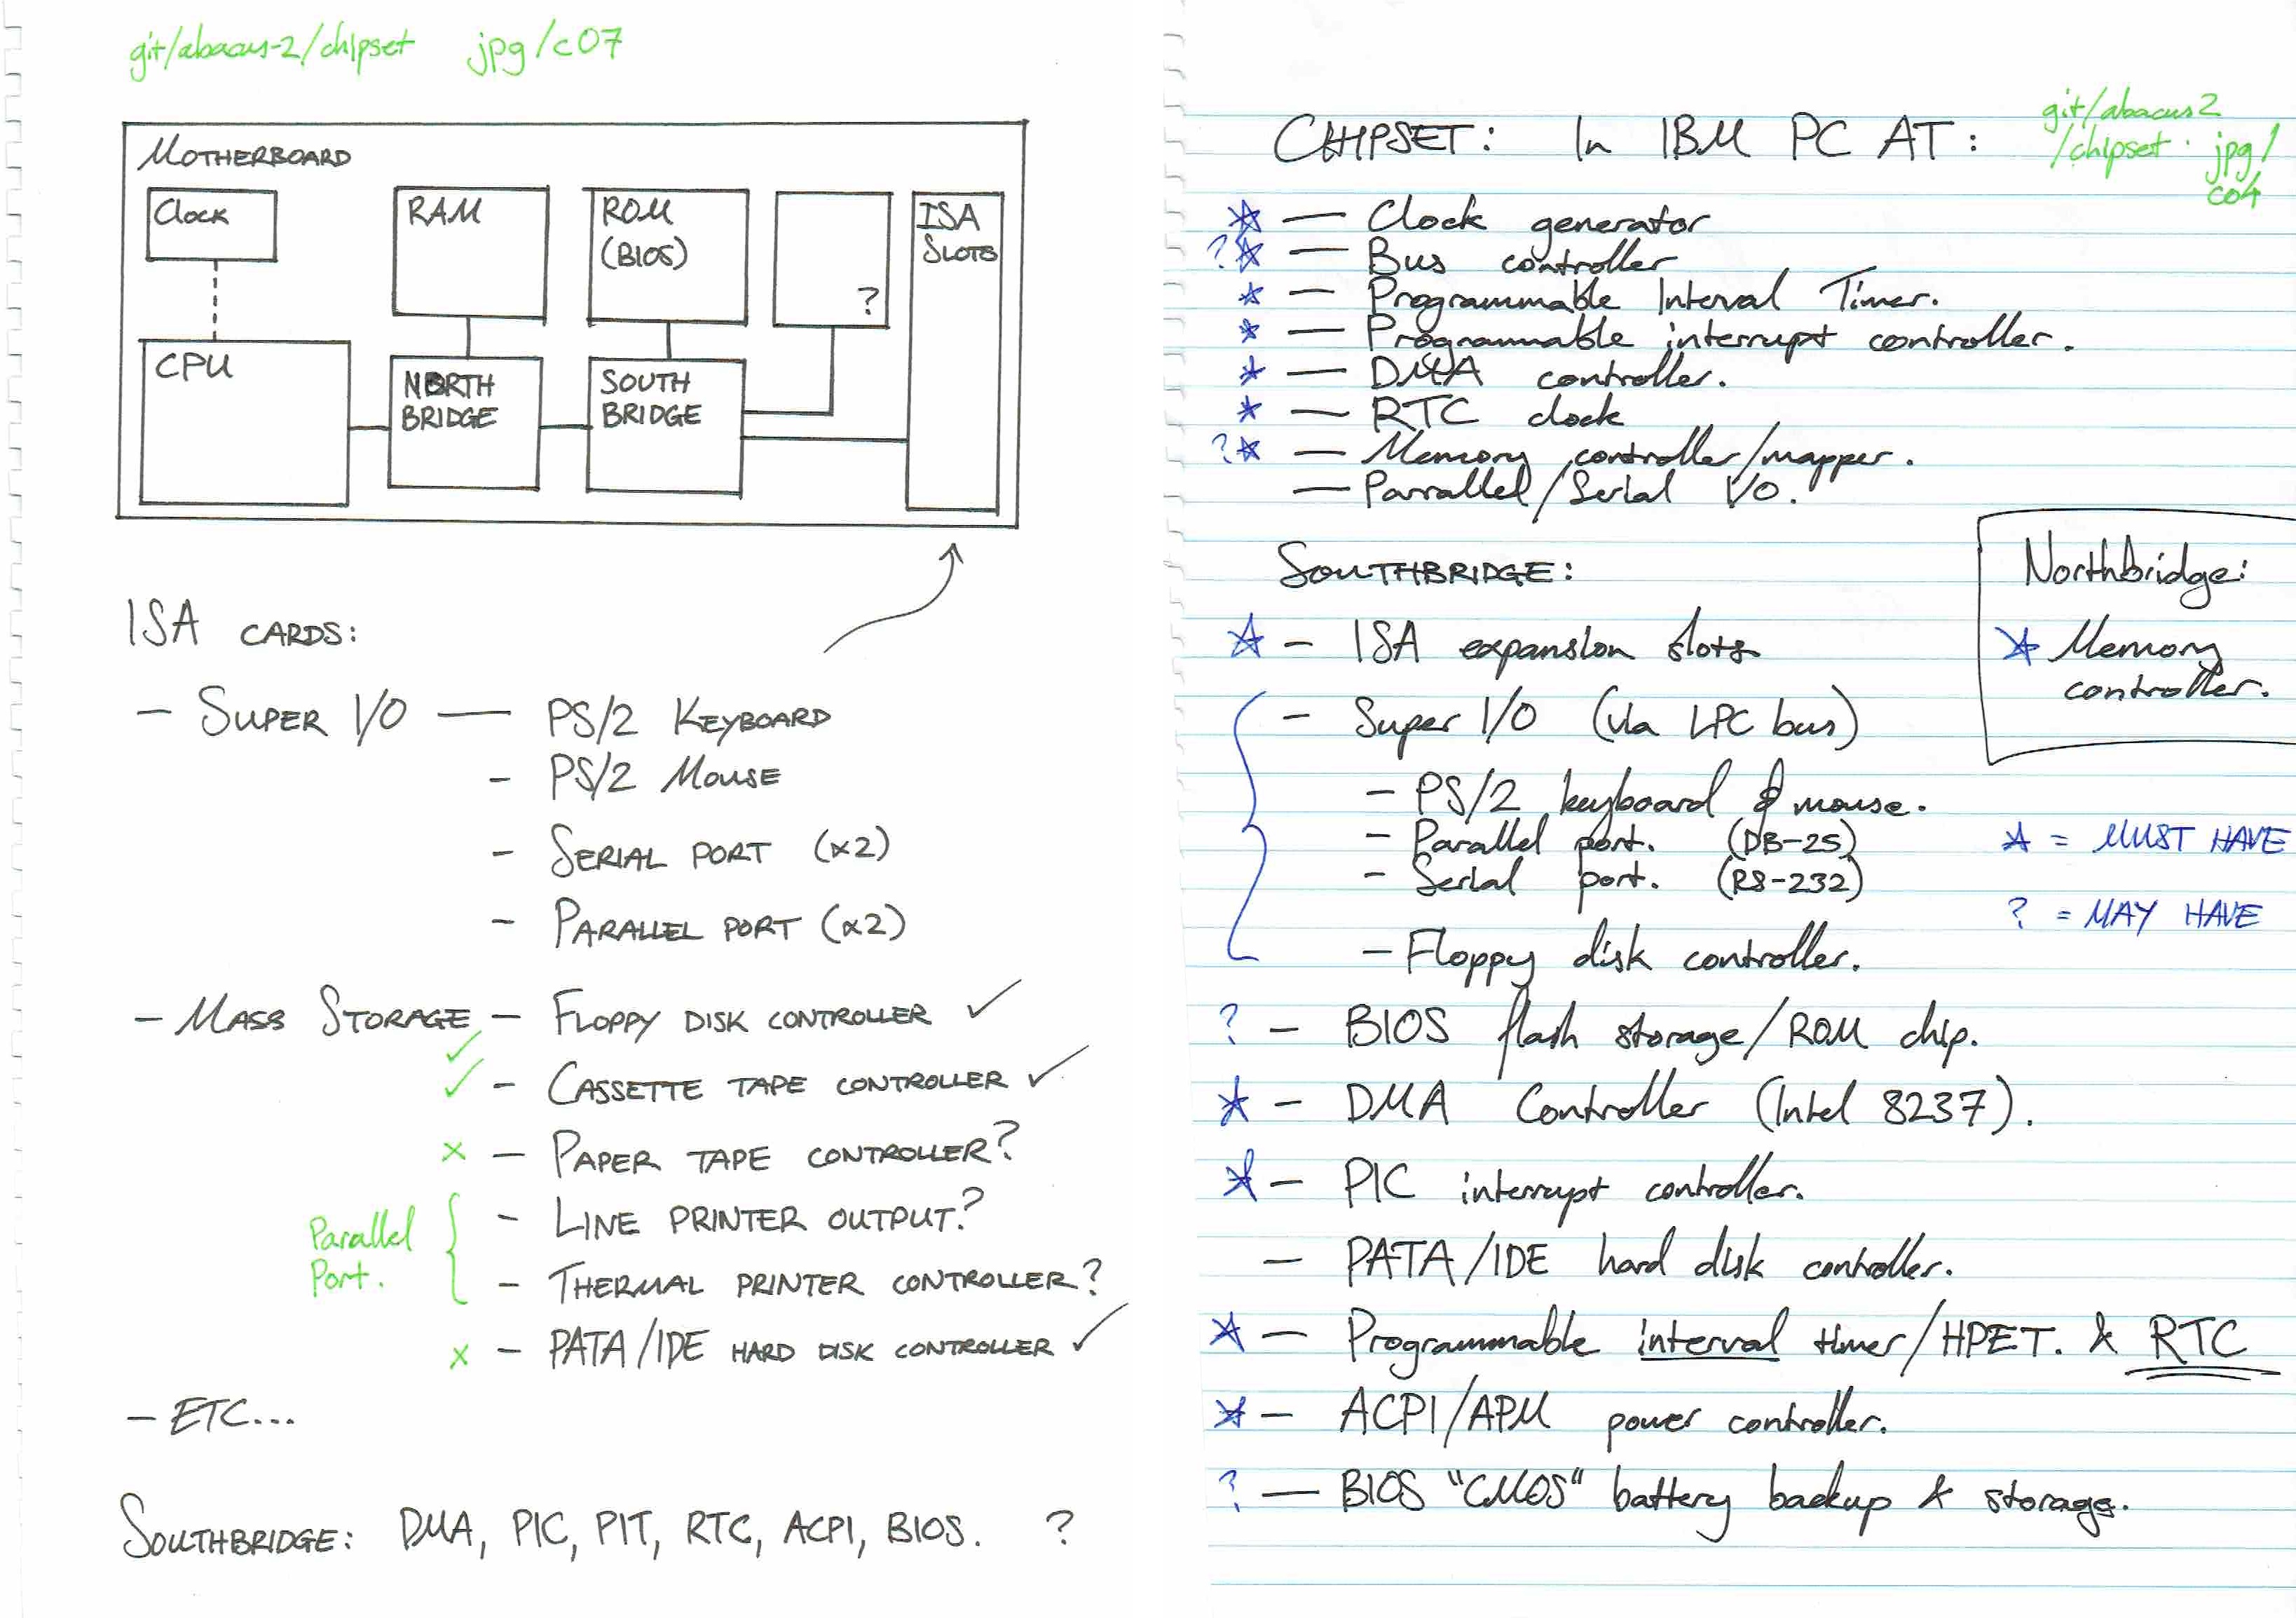 git/abacus-2/chipset jpg/c07
MOTHERBOARD
Clock
RAM
ROM
(BIOS)
?
ISA
SLOTS
CPU
NORTH
BRIDGE
SOUTH
BRIDGE
ISA CARDS:
- SUPER I/O — PS/2 KEYBOARD
- PS/2 MOUSE
- SERIAL PORT (x2)
- PARALLEL PORT (x2)
- MASS STORAGE - FLOPPY DISK CONTROLLER ✓
✓
✓ - CASSETTE TAPE CONTROLLER ✓
x - PAPER TAPE CONTROLLER?
Parallel
Port.
- LINE PRINTER OUTPUT?
- THERMAL PRINTER CONTROLLER?
x - PATA/IDE HARD DISK CONTROLLER ✓
- ETC...
SOUTHBRIDGE: DMA, PIC, PIT, RTC, ACPI, BIOS. ?
CHIPSET: In IBM PC AT:
git/abacus2
/chipset. jpg/
c04
☆ — Clock generator
?☆ — Bus controller
☆ — Programmable Interval Timer.
☆ — Programmable interrupt controller.
☆ — DMA controller.
☆ — RTC clock
?☆ — Memory controller/mapper.
— Parrallel/Serial I/O.
SOUTHBRIDGE:
☆ - ISA expansion slots
- Super I/O (via LPC bus)
- PS/2 keyboard & mouse.
- Parallel port. (DB-25)
- Serial port. (RS-232)
- Floppy disk controller.
Northbridge:
☆ Memory
controller.
☆ = MUST HAVE
? = MAY HAVE
? - BIOS flash storage/ROM chip.
☆ - DMA Controller (Intel 8237).
☆ - PIC interrupt controller.
- PATA/IDE hard disk controller.
☆ — Programmable interval timer/HPET. & RTC
☆ — ACPI/APM power controller.
? — BIOS "CMOS" battery backup & storage.